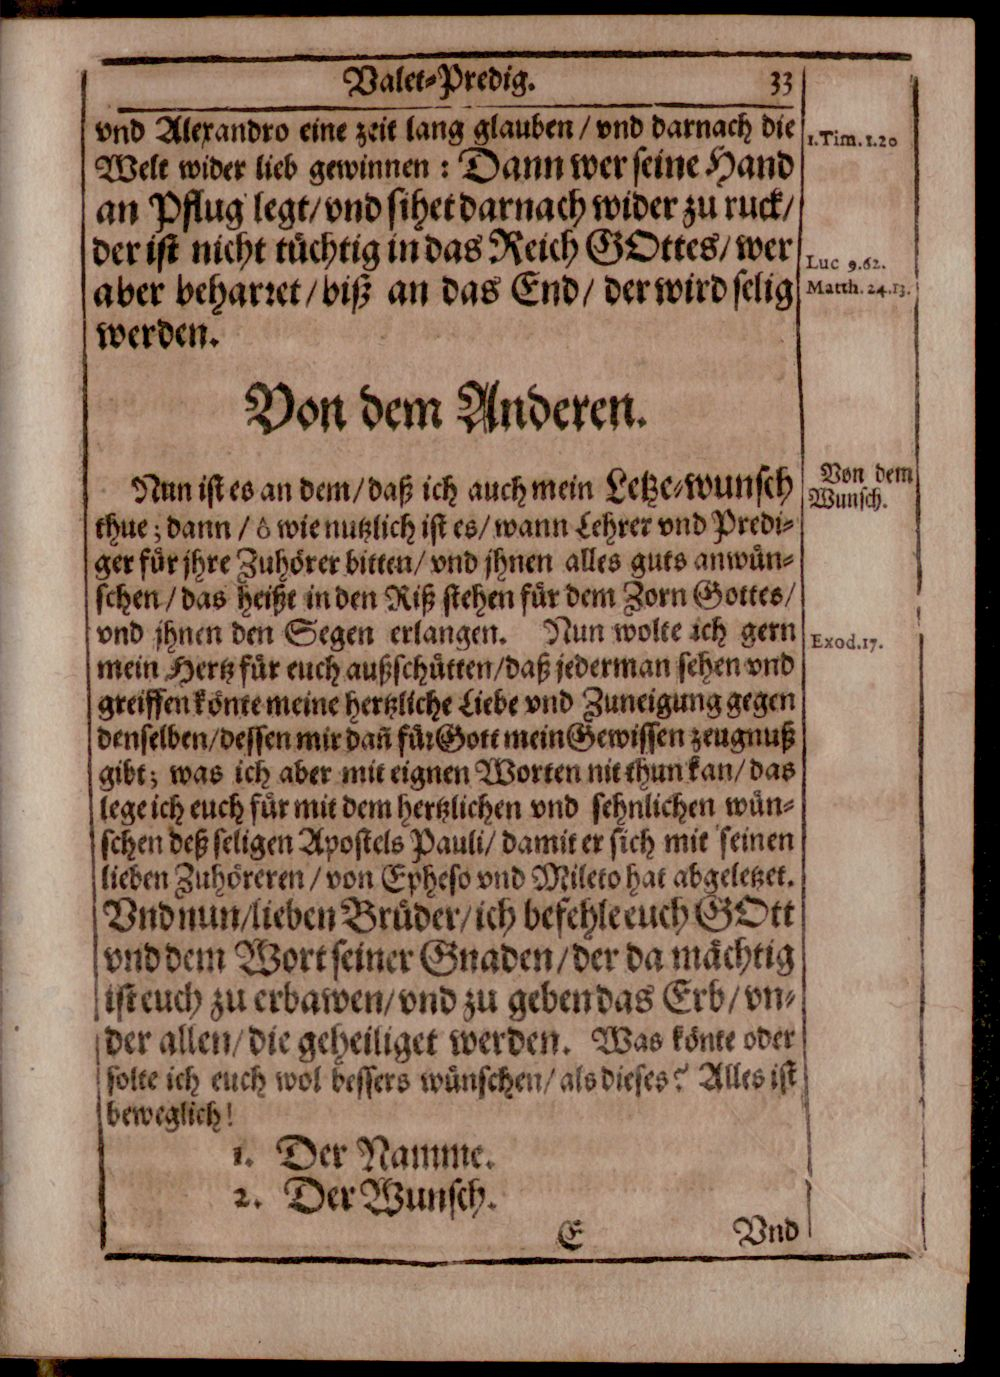 Valet-Predig. 33
vnd Alexandro eine zeit lang glauben / vnd darnach die
1. Tim. 1.20
Welt wider lieb gewinnen : Dann wer seine Hand
an Pflug legt/ vnd sihet darnach wider zu ruck/
der ist nicht tüchtig in das Reich GOttes/ wer
Luc 9.62.
aber beharret / biß an das End / der wird selig
Matth. 24.13.
werden.
Von dem Anderen.
Nun ist es an dem/ daß ich auch mein Letze-wunsch
Von dem
Wunsch.
thue ; dann / ô wie nutzlich ist es/ wann Lehrer vnd Predi-
ger für jhre Zuhörer bitten/ vnd jhnen alles guts anwün-
schen / das heißt in den Riß stehen für dem Zorn Gottes/
vnd jhnen den Segen erlangen. Nun wolte ich gern
Exod. 17.
mein Hertz für euch außschütten/ daß jederman sehen vnd
greiffen könte meine hertzliche Liebe vnd Zuneigung gegen
denselben/ dessen mir dañ für Gott mein Gewissen zeugnuß
gibt; was ich aber mit eignen Worten nit thun kan/ das
lege ich euch für mit dem hertzlichen vnd sehnlichen wün-
schen deß seligen Apostels Pauli/ damit er sich mit seinen
lieben Zuhöreren / von Epheso vnd Mileto hat abgeletzet.
Vnd nun/ lieben Brüder/ ich befehle euch GOtt
vnd dem Wort seiner Gnaden / der da mächtig
ist euch zu erbawen/ vnd zu geben das Erb/ vn-
der allen/ die geheiliget werden. Was könte oder
solte ich euch wol bessers wünschen/ als dieses? Alles ist
beweglich!
1. Der Namme.
2. Der Wunsch.
E Vnd